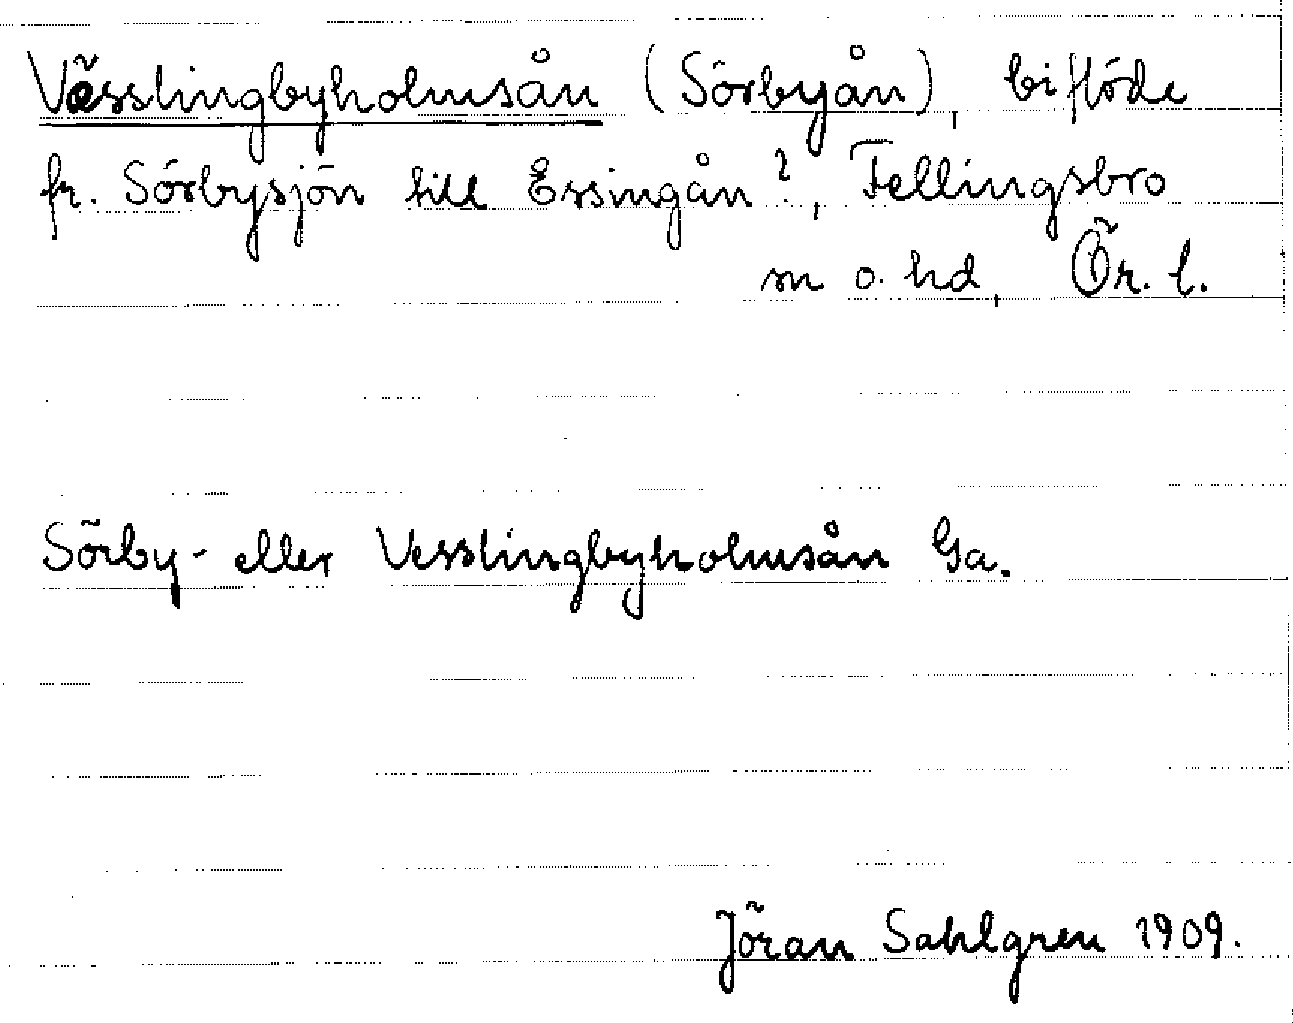 Vässlingbyholmsån (Sörbyån), biflöde
fr. Sörbysjön till Ersingån?, Fellingsbro
sn o. hd, Ör. l.
Sörby- eller Vesslingbyholmsån Ga.
Jöran Sahlgren 1909.